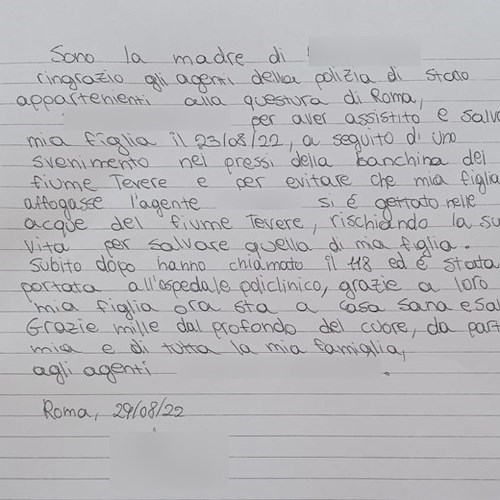 Sono la madre di
ringrazio gli agenti della polizia di stato
appartenenti alla questura di Roma,
per aver assistito e salv
mia figlia il 23/08/22, a seguito di uno
svenimento nei pressi della banchina del
fiume Tevere e per evitare che mia figlia
affogasse l'agente si é gettato nelle
acque del fiume Tevere, rischiando la su
vita per salvare quella di mia figlia.
Subito dopo hanno chiamato il 118 ed é stata
portata all'ospedale policlinico, grazie a loro
mia figlia ora sta a casa sana e sal
Grazie mille dal profondo del cuore, da part
mia e di tutta la mia famiglia,
agli agenti .
Roma, 29/08/22